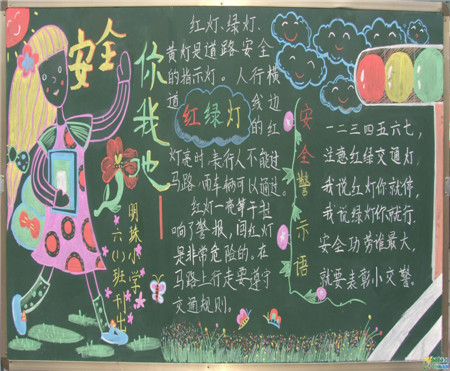 安全
你我他
红灯、绿灯、
黄灯是道路安全
的指示灯。人行横
道
线边
红绿灯
的红
灯亮时,表行人不能过
马路,而车辆可以通过。
红灯一亮等于拉
响了警报,闯红灯
是非常危险的。在
马路上行走要遵守
交通规则。
安全警示语
一二三四五六七,
注意红绿交通灯,
我说红灯你就停,
我说绿灯你就行,
安全功劳谁最大,
就要表彰小交警。
明珠小学
六(1)班刊